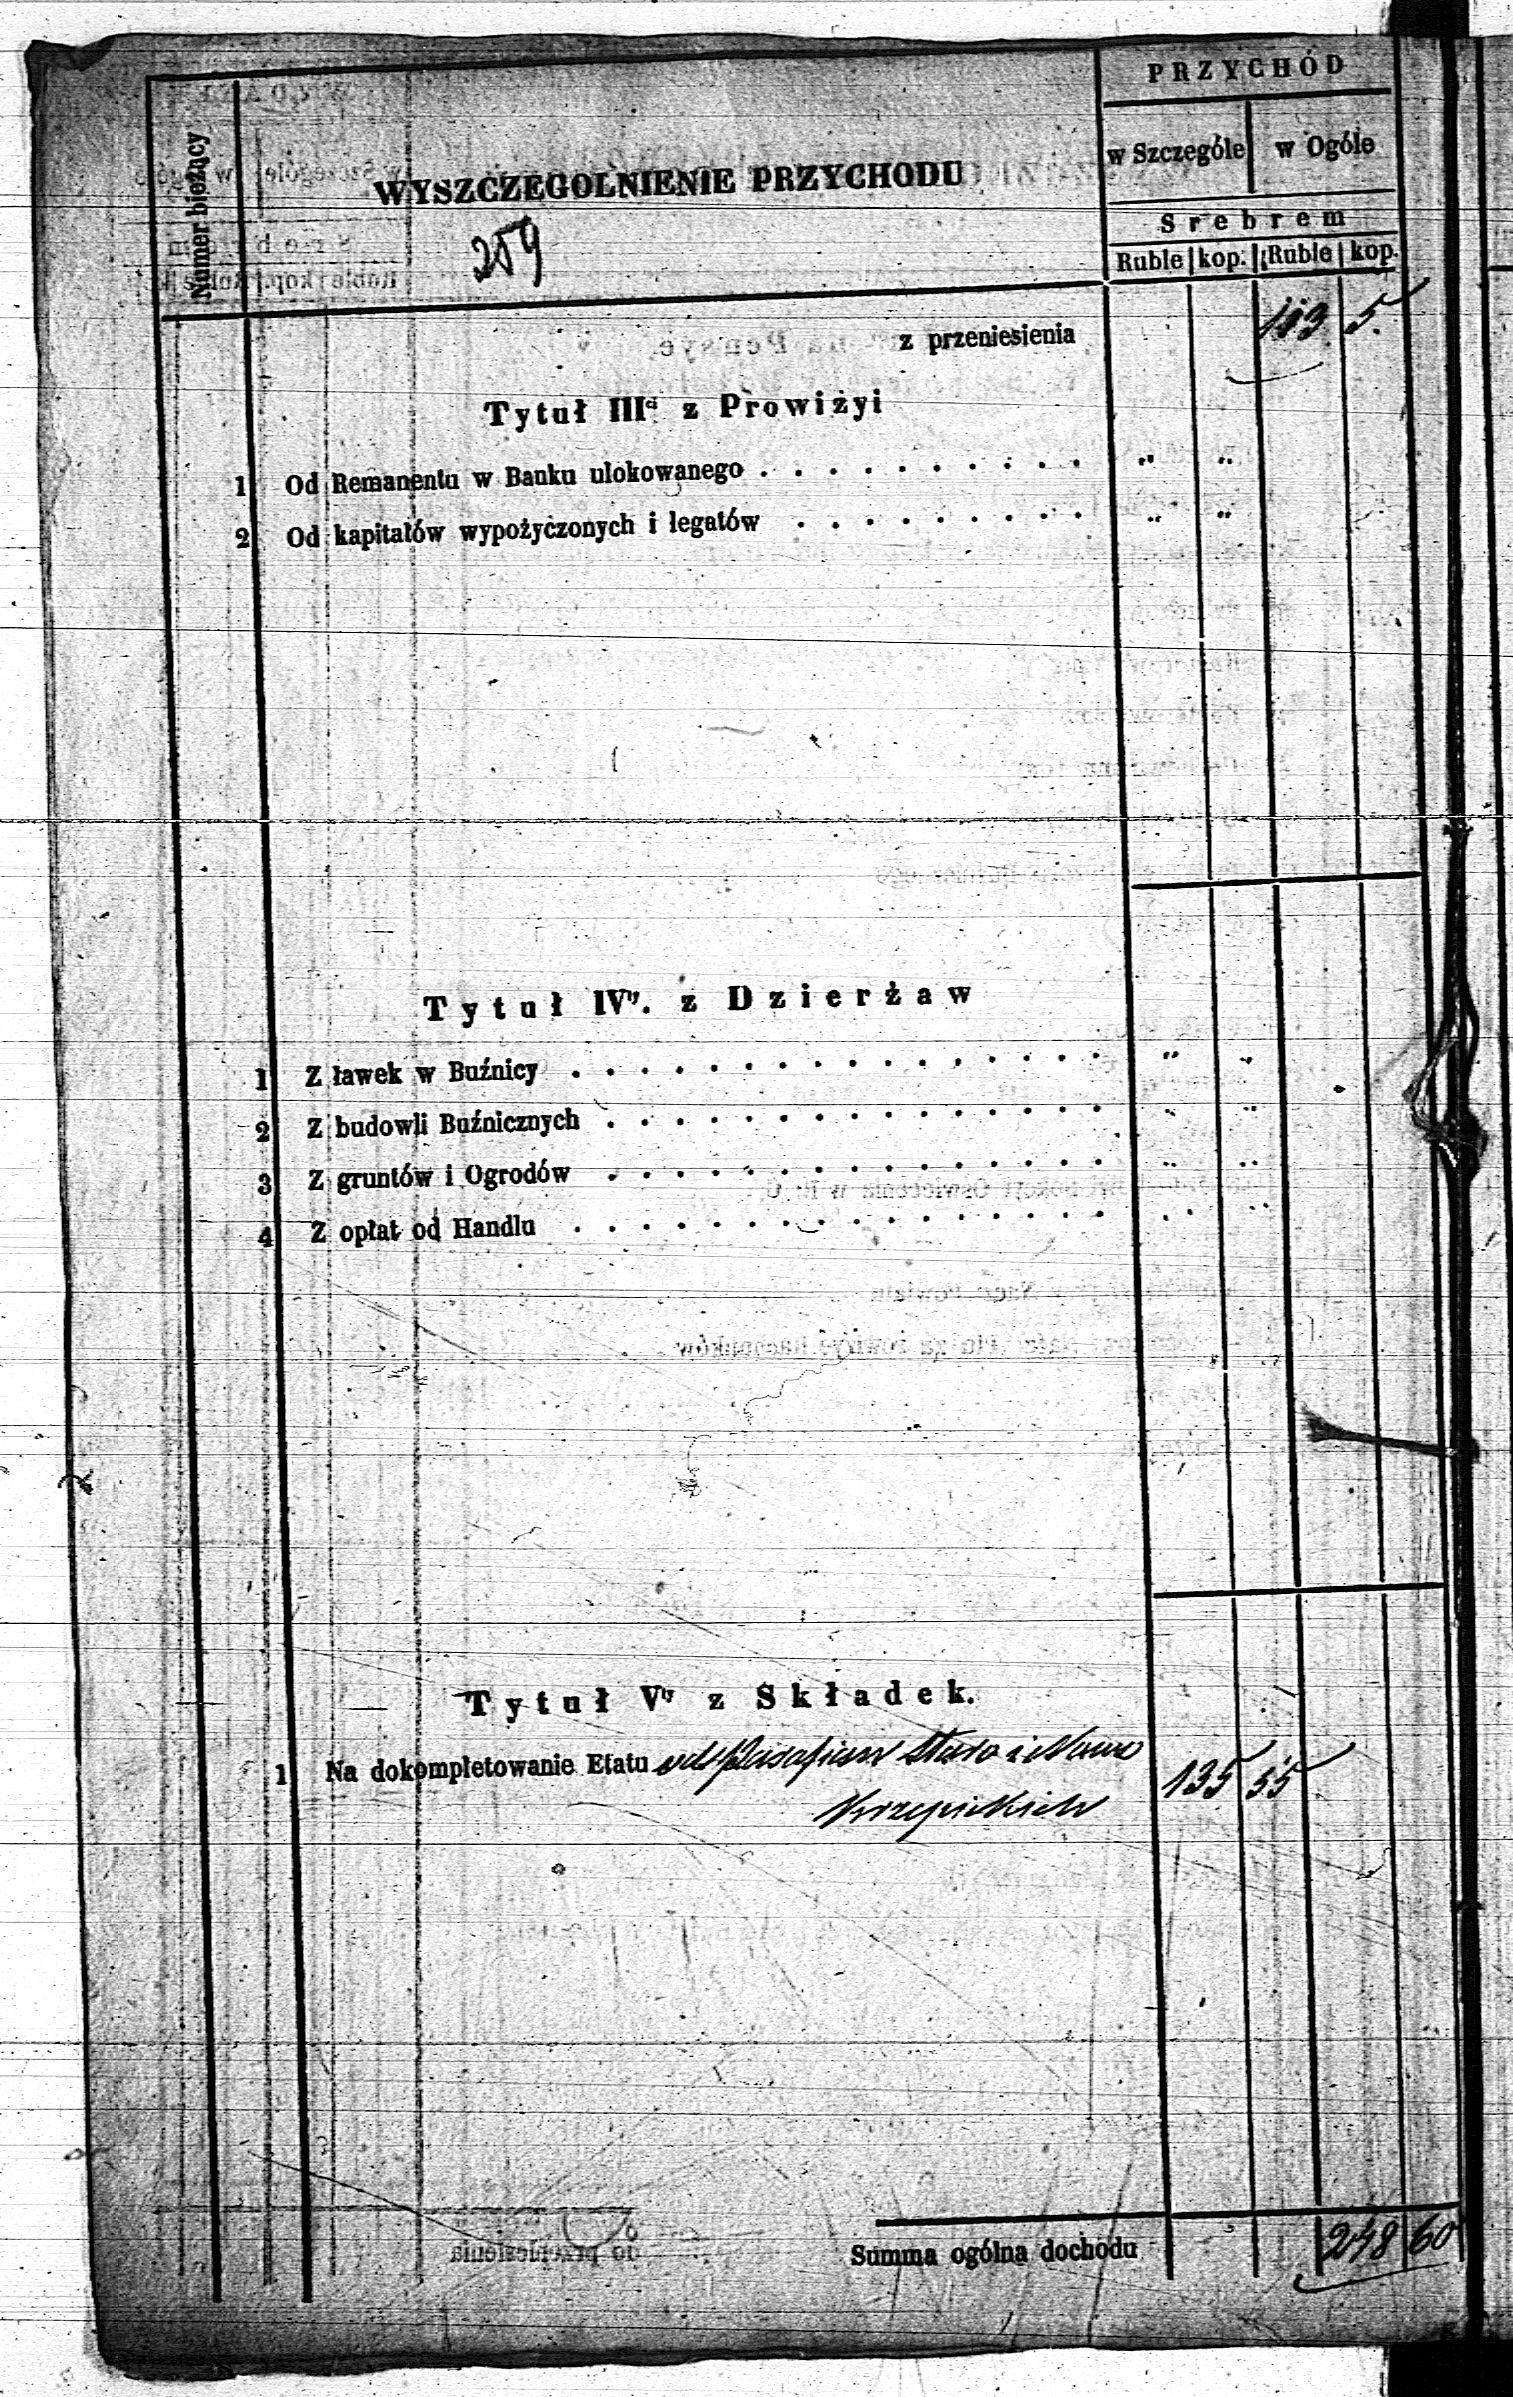 PRZYCHÓD
Numer bieżący
WYSZCZEGOLNIENIE PRZYCHODU
w Szczególe w Ogóle
Srebrem
Ruble kop. Ruble kop.
259
z przeniesienia 113 5.
Tytuł IIIci z Prowiżyi
1 Od Remanentu w Banku ulokowanego . . . . . . . . . . „ „
2 Od kapitałów wypożyczonych i legatów . . . . . . . . . „ „
Tytuł IVty. z Dzierżaw
1 Z ławek w Buźnicy . . . . . . . . . . . . . . . . „ „
2 Z budowli Buźnicznych . . . . . . . . . . . . . . . „ „
3 Z gruntów i Ogrodów . . . . . . . . . . . . . . . „ „
4 Z opłat od Handlu . . . . . . . . . . . . . . . . „ „
Tytuł Vty z Składek.
1 Na dokompletowanie Etatu od Parafian Staro i Nowo
Krzepickich 135 55
Summa ogólna dochodu 248 60